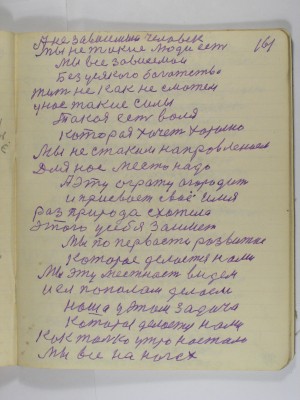 А не зависимый человек
161
Мы не такие люди есть
Мы все зависимой
Без усякого богатства
жить не как не сможем
у нас такие силы
Такая есть воля
Которая хочет хорошо
Мы не с таким направлением
Для нас место надо
А эту ограту огородит
и присвает своё имя
раз природа схотила
этого у себя Займет
Мы по первасти развитие
Которое делается нами
Мы эту местность видем
и ей пополам делаем
наша у этом задача
Которая делается нами
Как только утро настало
Мы все на ногах